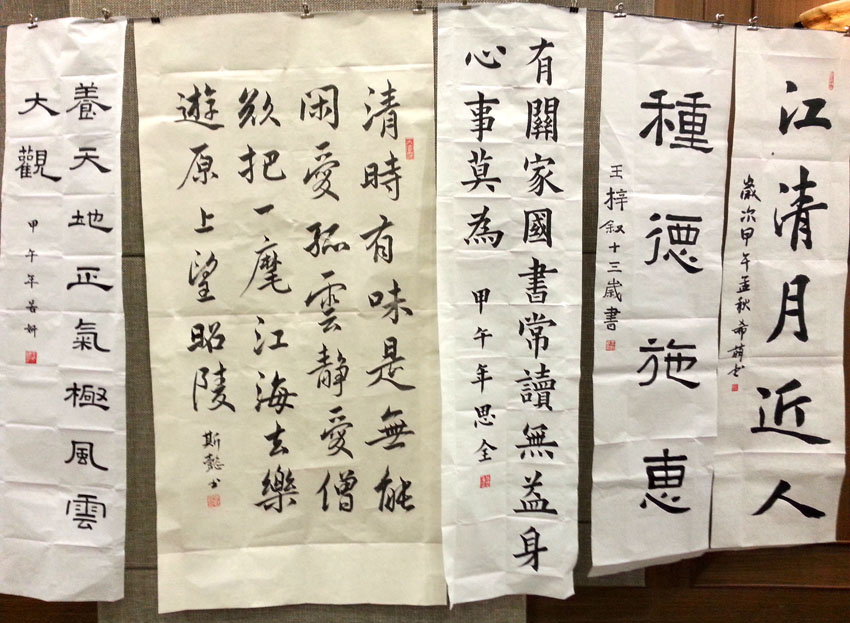 江清月近人
歲次甲午孟秋希萌書
種德施惠
王梓叙十三歲書
有關家國書常讀無益身
心事莫為
甲午年思全
清時有味是無能
闲愛孤雲静愛僧
欲把一麾江海去樂
遊原上望昭陵
斯懿书
養天地正氣極風雲
大觀
甲午年若妍